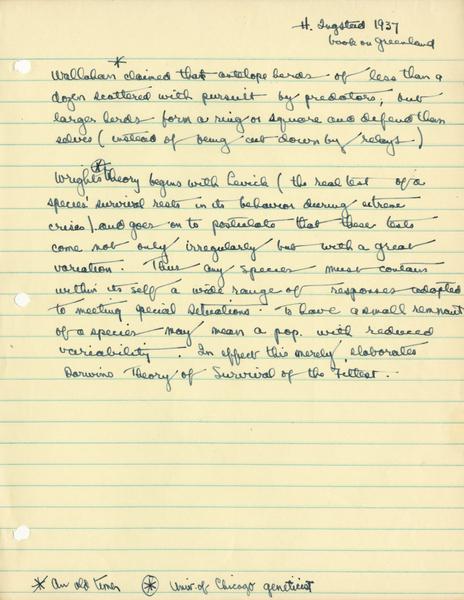 H. Ingstad 1937
book on Greenland
*
Wallahan claimed that antelope herds of less than a
dozen scattered with pursuit by predators, but
larger herds form a ring or square and defend them
selves (instead of being cut down by relays)
Wright's ⊛ theory begins with (the real test of a
species' survival rests in its behavior during extreme
crises) and goes on to postulate that these tests
come not only irregularly but with a great
variation. Thus any species must contain
within its self a wide range of responses adapted
to meeting special situations. To have a small remnant
of a species may mean a pop. with reduced
variability. In effect this merely elaborates
Darwins Theory of Survival of the Fittest.
* An old timer ⊛ Univ. of Chicago geneticist